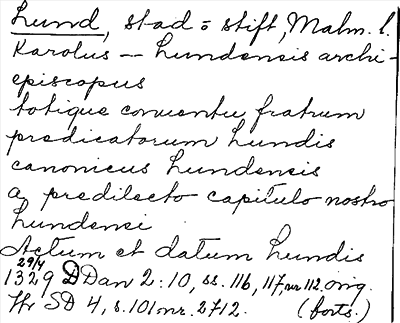 Lund, stad o stift, Malm. l.
Karolus — Lundensis archi-
episcopus
totique conventu fratrum
predicatorum Lundis
canonicus Lundensis
a predilecto capitulo nostro
Lundensi
Actum et datum Lundis
1329 29/4 DDan 2:10, ss. 116, 117, nr 112. orig.
Tr SD 4, s. 101 nr. 2712. (forts.)